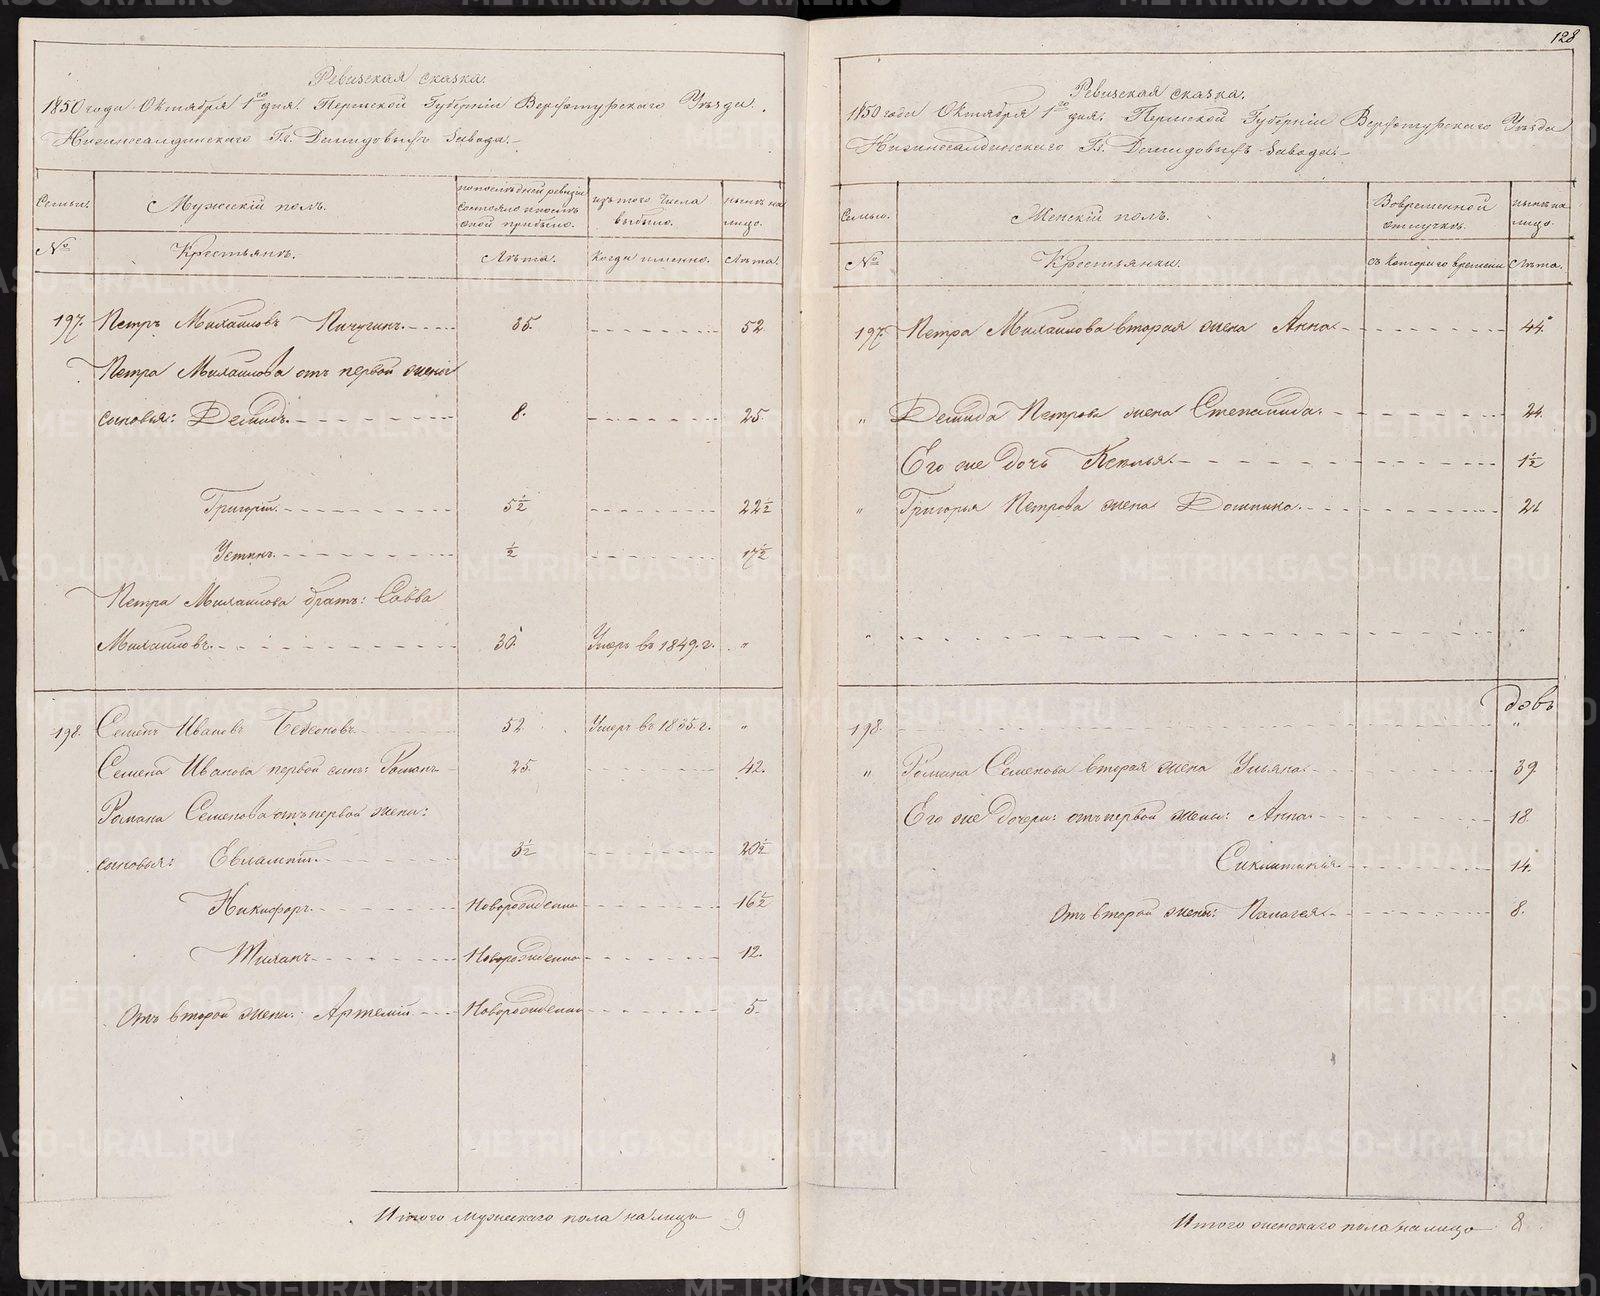 Ревизская сказка.
1850 года Октября 1го дня. Пермской Губерніи Верхотурскаго Уѣзда.
Нижнесалдинскаго Гг. Демидовыхъ Завода.
Семьи. Мужескій полъ. по последней ревизіи состояло и послѣ оной прибыло. изъ того числа выбыло. нынѣ на лицо.
№ Крестьянъ. Лѣта. Когда именно. Лѣта.
197. Петръ Михайловъ Пичугинъ. 35. 52
Петра Михайлова отъ первой жены
сыновья: Демидъ. 8. 25.
Григорій. 5½ 22½
Устинъ. ½ 17½
Петра Михайлова братъ: Савва
Михайловъ. 30. Умеръ въ 1849. г. "
198. Семенъ Ивановъ 52. Умеръ въ 1835. г. "
Семена Иванова первой сынъ: Романъ 25. 42.
Романа Семенова отъ первой жены:
сыновья: Евлампій. 3½ 20½
Никифоръ. Новорожденно 16½
Новорожденно 12.
Отъ второй жены: Артемій Новорожденно 5.
Итого мужескаго пола на лицо 9
128
Ревизская сказка.
1850 года Октября 1го дня. Пермской Губерніи Верхотурскаго Уѣзда
Нижнесалдинскаго Гг. Демидовыхъ Завода.
Семьи. Женскій полъ. Во временной отлучкѣ. нынѣ на лицо.
№ Крестьянки. съ котораго времени Лѣта.
197. Петра Михайлова вторая жена Анна 44.
" Демида Петрова жена Степанида. 24.
Его же дочь 1½
" Григорья Петрова жена Домника. 21
" "
198. "
" Романа Семенова вторая жена Ульяна 39.
Его же дочери: отъ первой жены: Анна. 18.
Синклитикія 14.
Отъ второй жены: Палагея. 8.
Итого женскаго пола на лицо 8
METRIKI.GASO-URAL.RU